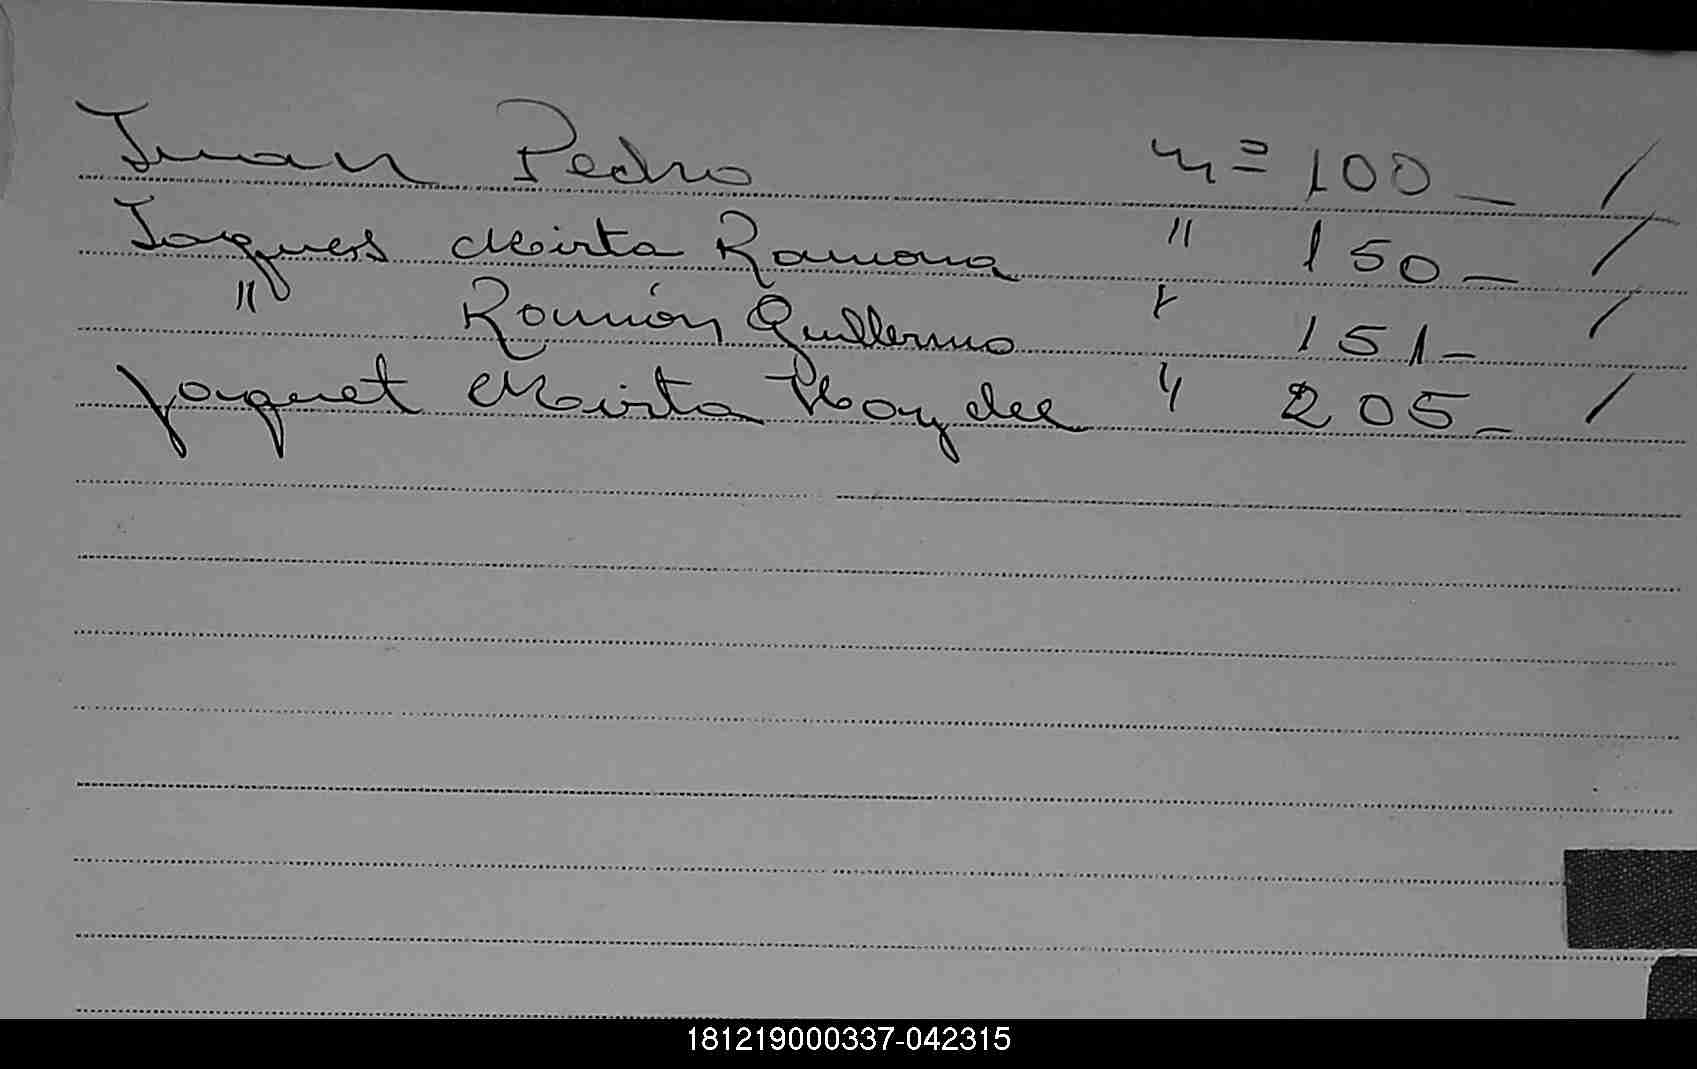 Juan Pedro nº 100_ /
Jaques Mirta Ramona " 150_ /
" Ramón Guillermo " 151_ /
Jaquet Mirta Haydee " 205_ /
181219000337-042315